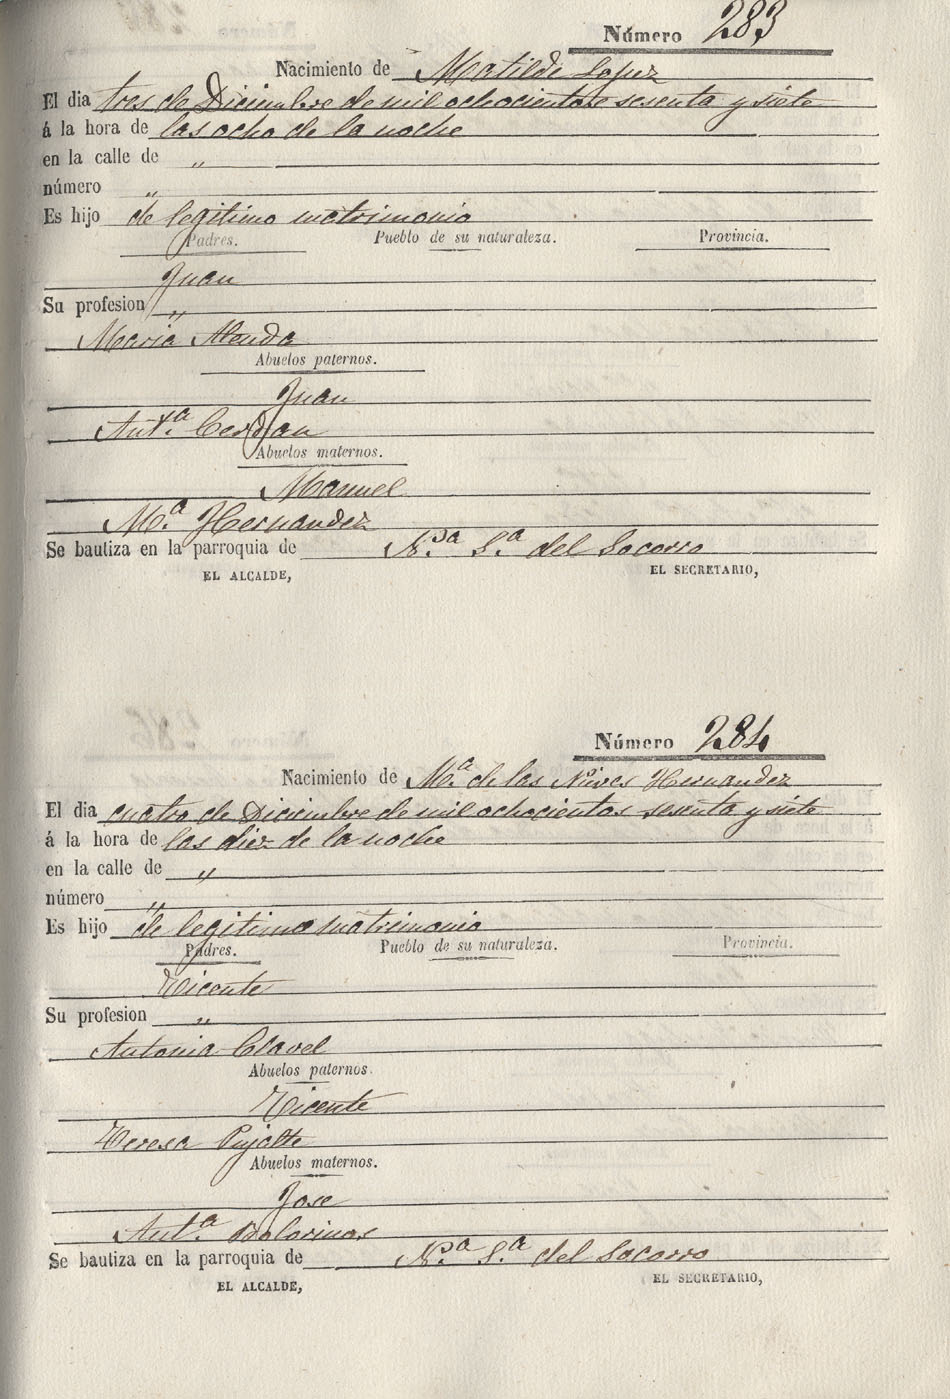 Número 283
Nacimiento de Matilde Lopez
El dia tres de Diciembre de mil ochocientos sesenta y siete
á la hora de las ocho de la noche
en la calle de "
número "
Es hijo de legitimo matrimonio
Padres. Pueblo de su naturaleza. Provincia.
Juan
Su profesion "
Maria Alenda
Abuelos paternos.
Juan
Ant.ª Cerdan
Abuelos maternos.
Manuel
M.ª Hernandez
Se bautiza en la parroquia de N.ª S.ª del Socorro
EL ALCALDE, EL SECRETARIO,
Número 284
Nacimiento de M.ª de las Nieves Hernandez
El dia cuatro de Diciembre de mil ochocientos sesenta y siete
á la hora de las diez de la noche
en la calle de "
número "
Es hijo de legitimo matrimonio
Padres. Pueblo de su naturaleza. Provincia.
Vicente
Su profesion "
Antonia Clavel
Abuelos paternos.
Vicente
Teresa Pujalte
Abuelos maternos.
Jose
Ant.ª
Se bautiza en la parroquia de N.ª S.ª del Socorro
EL ALCALDE, EL SECRETARIO,